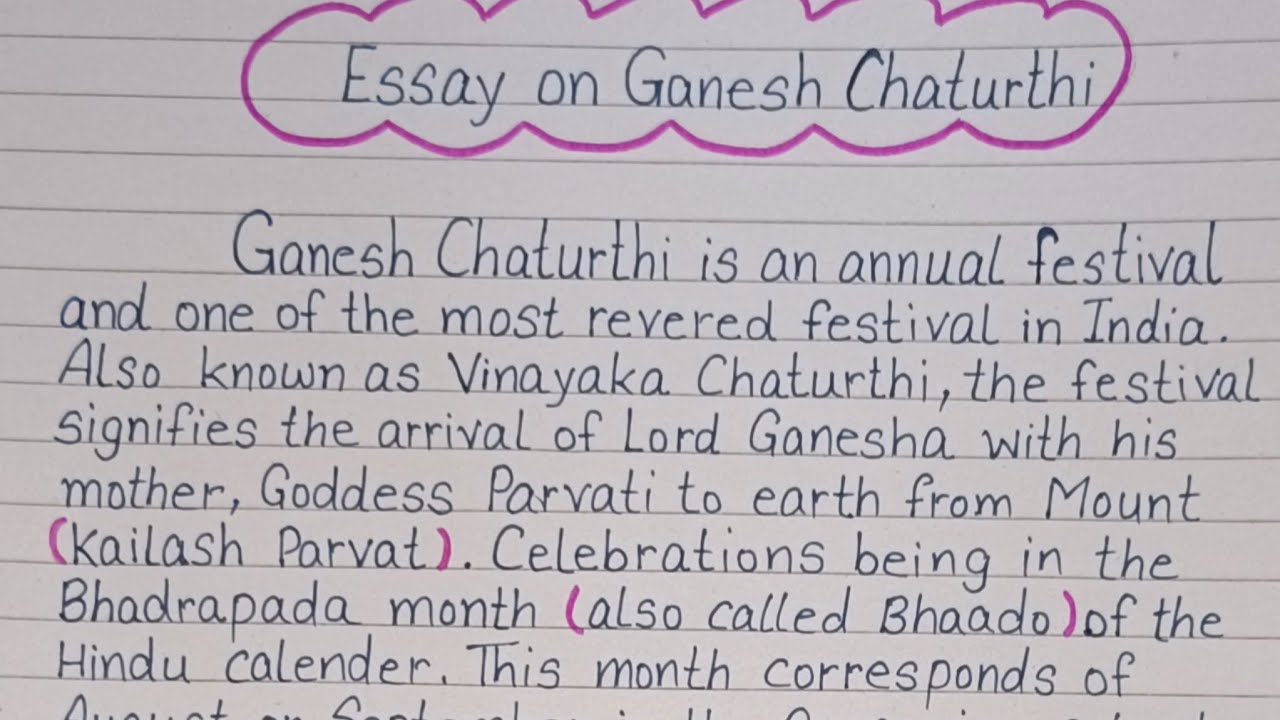 Essay on Ganesh Chaturthi
Ganesh Chaturthi is an annual festival
and one of the most revered festival in India.
Also known as Vinayaka Chaturthi, the festival
signifies the arrival of Lord Ganesha with his
mother, Goddess Parvati to earth from Mount
(Kailash Parvat). Celebrations being in the
Bhadrapada month (also called Bhaado) of the
Hindu calender. This month corresponds of